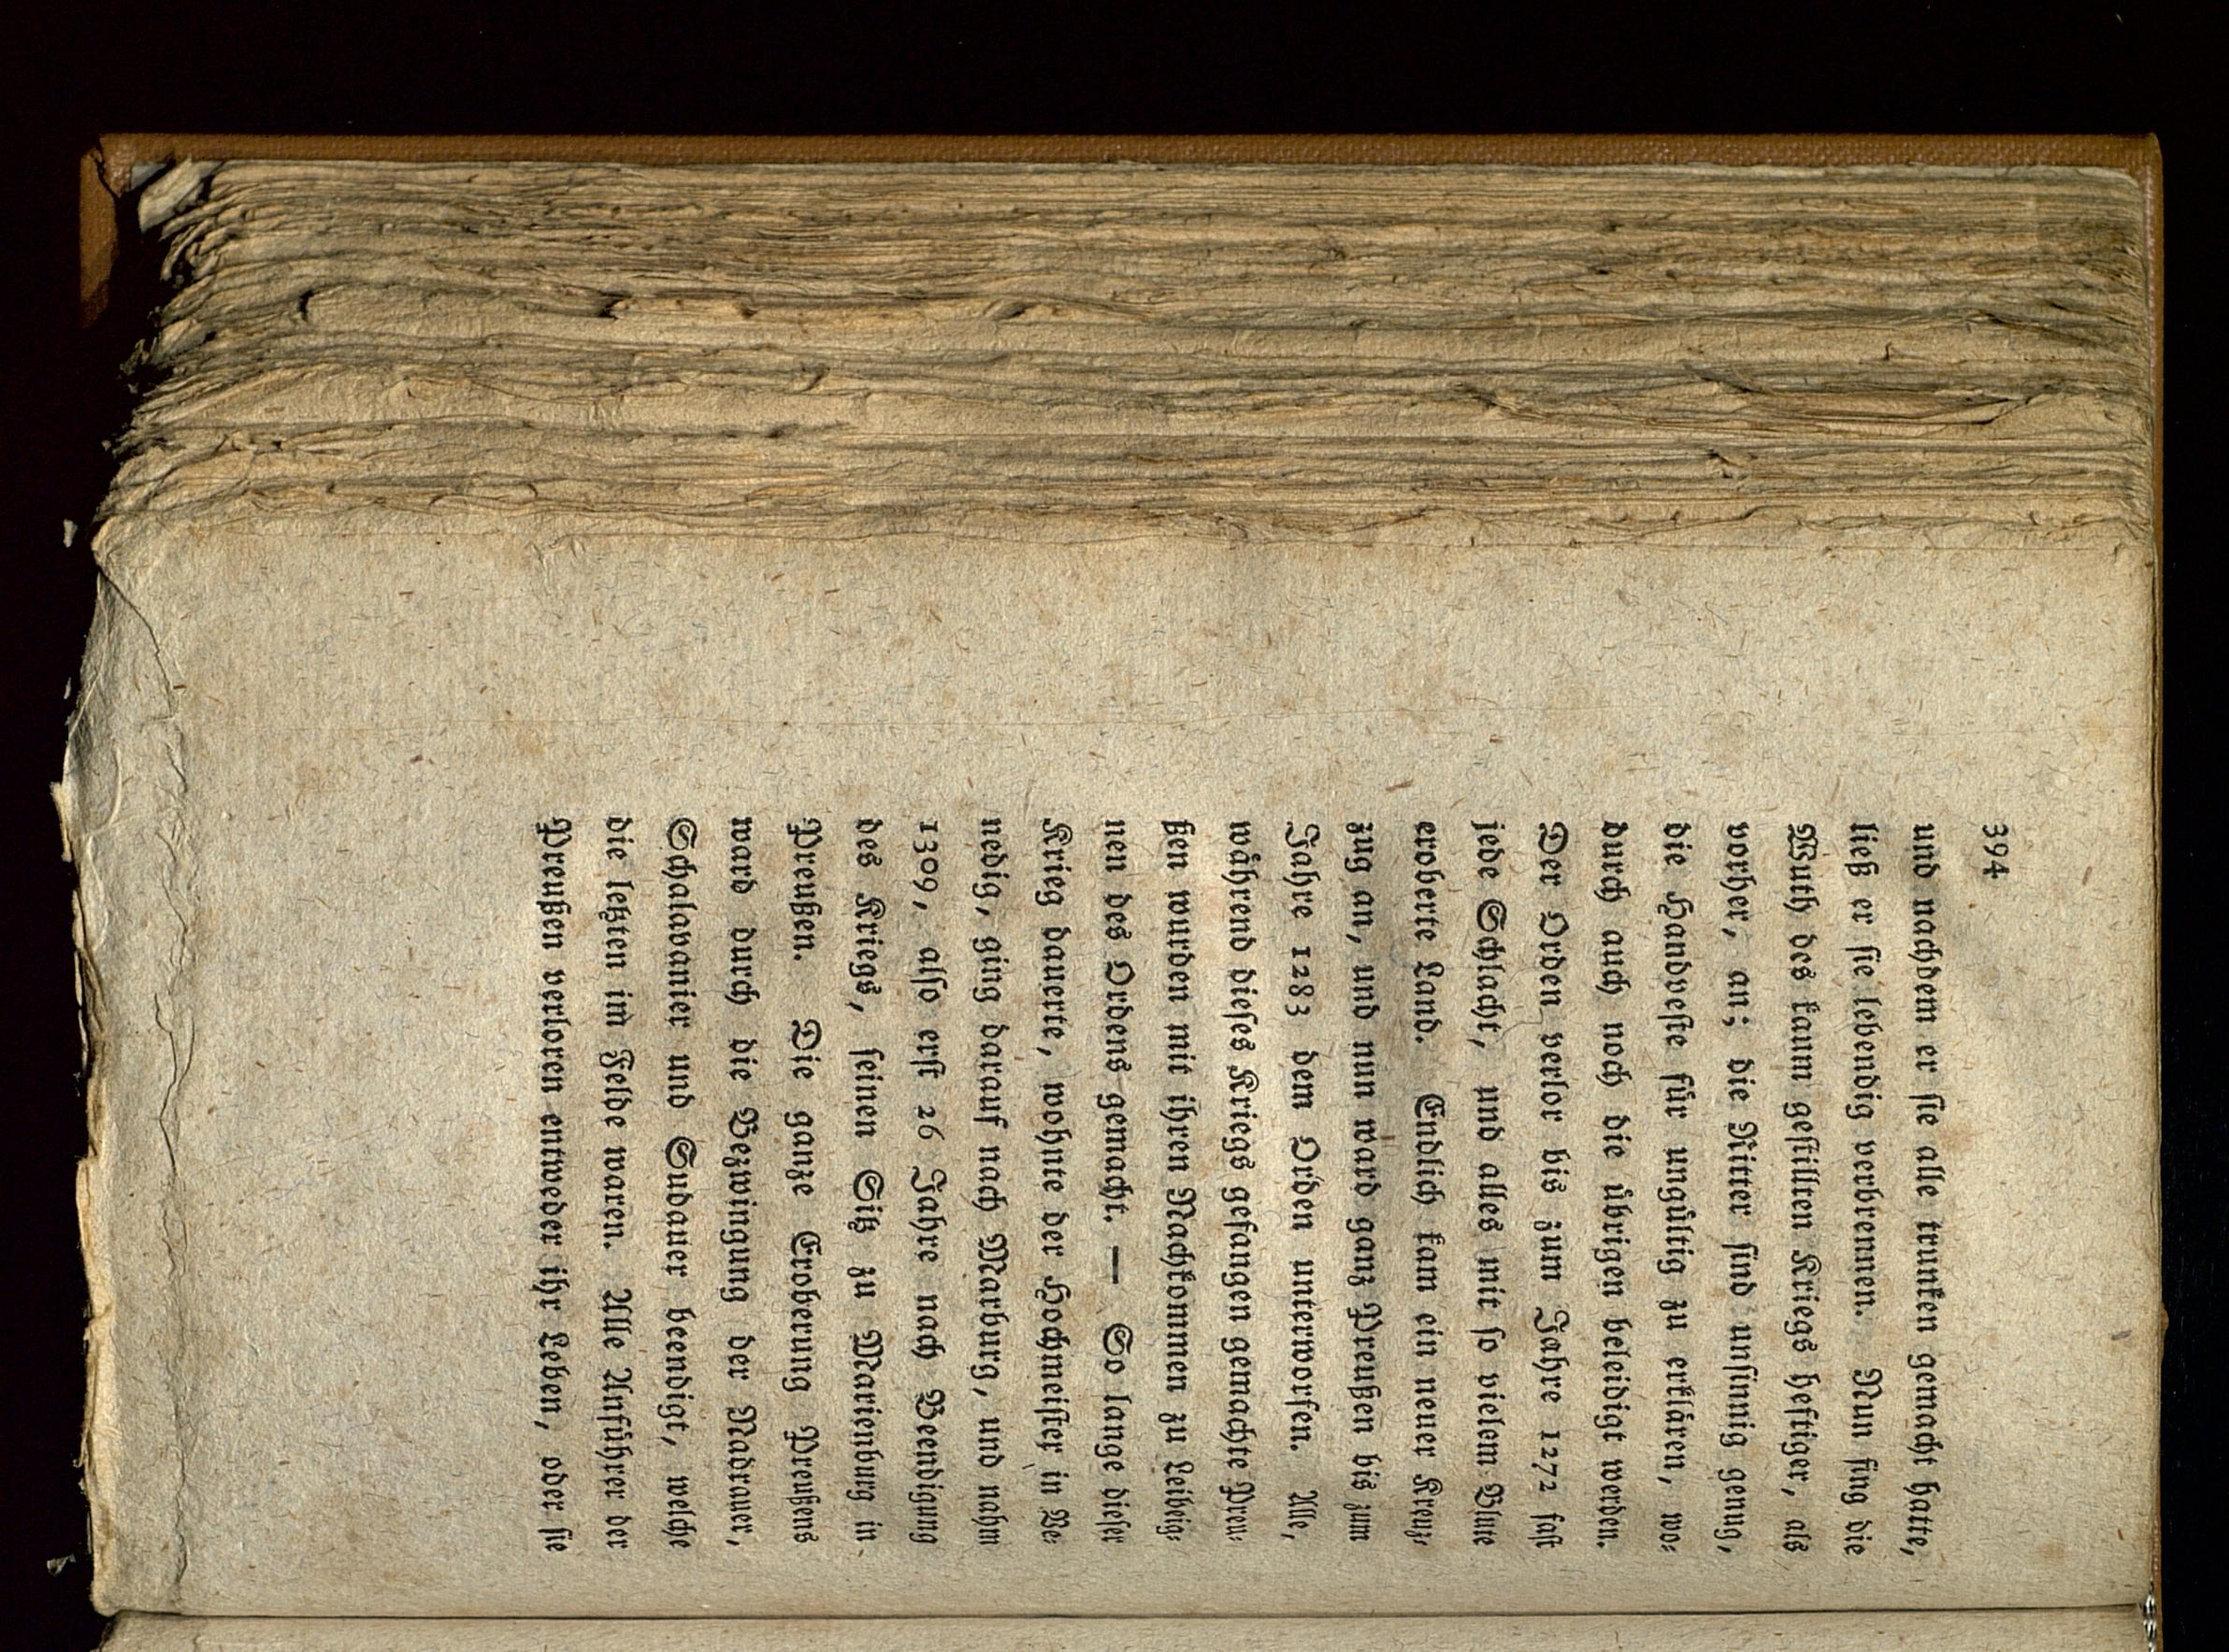 394
und nachdem er ſie alle trunken gemacht hatte,
ließ er ſie lebendig verbrennen. Nun fing die
Wuth des kaum geſtillten Kriegs heftiger, als
vorher, an; die Ritter ſind unſinnig genug,
die Handveſte fuͤr unguͤltig zu erklaͤren, wo⸗
durch auch noch die uͤbrigen beleidigt werden.
Der Orden verlor bis zum Jahre 1272 faſt
jede Schlacht, und alles mit ſo vielem Blute
eroberte Land. Endlich kam ein neuer Kreuz⸗
zug an, und nun ward ganz Preußen bis zum
Jahre 1283 dem Orden unterworfen. Alle,
waͤhrend dieſes Kriegs gefangen gemachte Preu⸗
ßen wurden mit ihren Nachkommen zu Leibeig⸗
nen des Ordens gemacht. — So lange dieſer
Krieg dauerte, wohnte der Hochmeiſter in Ve⸗
nedig, ging darauf nach Marburg, und nahm
1309, alſo erſt 26 Jahre nach Beendigung
des Kriegs, ſeinen Sitz zu Marienburg in
Preußen. Die ganze Eroberung Preußens
ward durch die Bezwingung der Nadrauer,
Schalavanier und Sudauer beendigt, welche
die letzten im Felde waren. Alle Anfuͤhrer der
Preußen verloren entweder ihr Leben, oder ſie